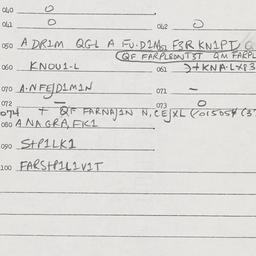 040 0
041 0 042 0
050 A DRIM QGL A FU-DIM F3R KNIPT
QF FARPLEONT3T QM FARPL
060 KNOU1-L 061 )+KNA-LXF3
070 A-NFEJDIMIN 071 -
072 - 073 0
074 + QF FARNAJ2N N,CEJXL (1015054 (3
080 ANAGRA,FK1
090 S+PILK1
100 FARS+PIL1V1T